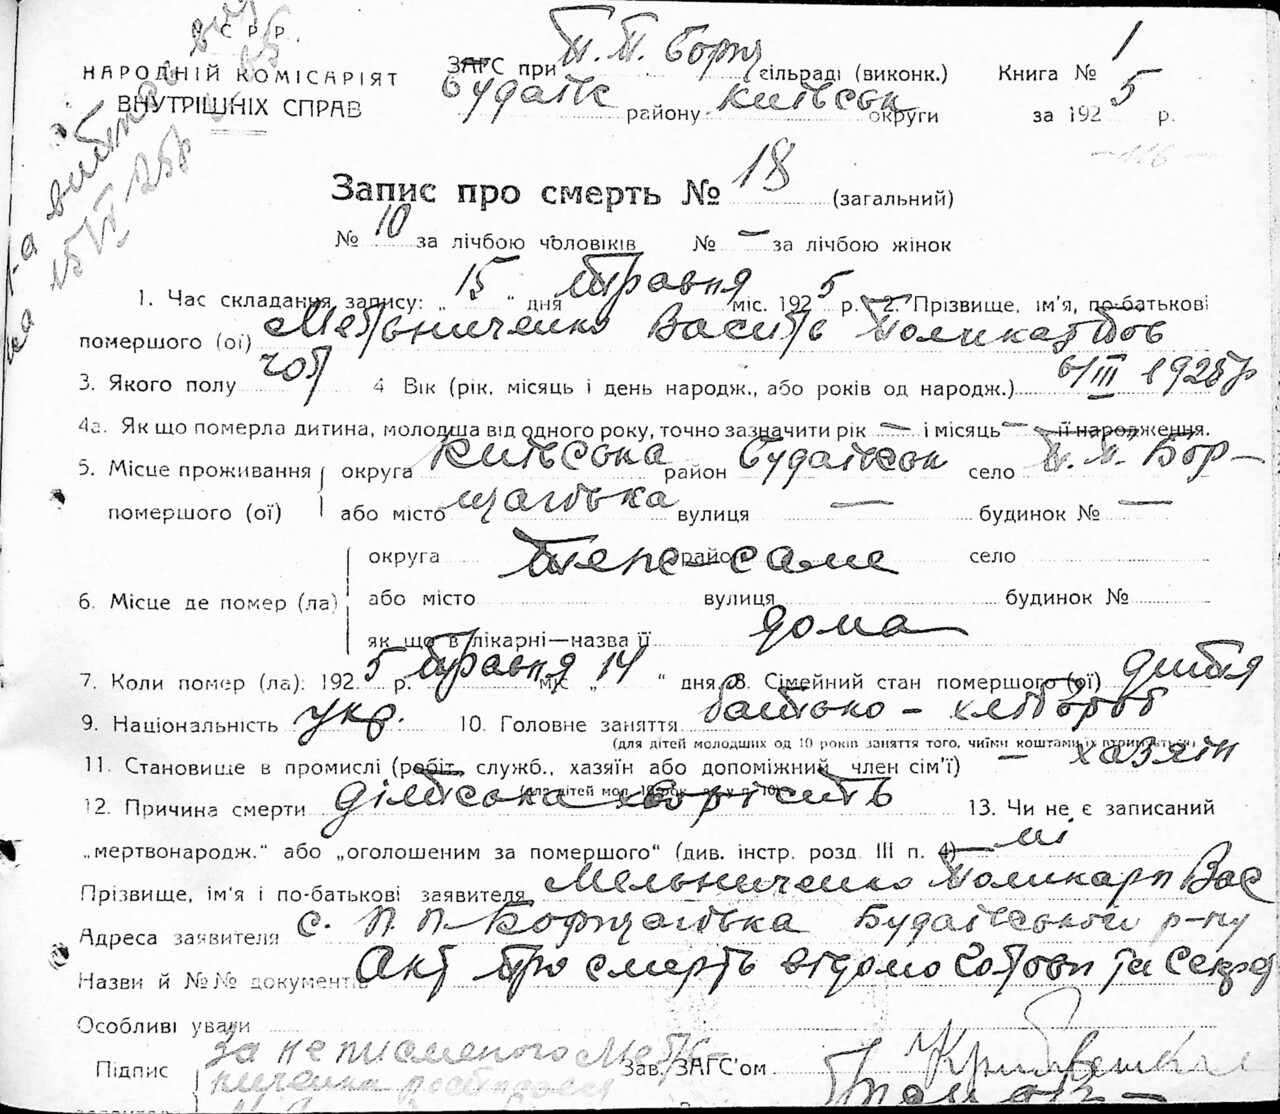 С. Р. Р.
НАРОДНІЙ КОМІСАРІЯТ
ВНУТРІШНІХ СПРАВ
ЗАГС при П. П. Борщ сільраді (виконк.) Книга № 1
Будаївс району Київськ округи за 1925 р.
-116-
Запис про смерть № 18 (загальний)
№ 10 за лічбою чоловіків № — за лічбою жінок
1. Час складання запису: „ 15 " дня травня міс. 1925 р. 2. Прізвище, ім'я, по-батькові
помершого (ої) Мельниченко Василь Поликарпов
3. Якого полу чол 4 Вік (рік, місяць і день народж., або років од народж.) 6/III 1925 р
4а. Як що померла дитина, молодша від одного року, точно зазначити рік — і місяць — її народження.
5. Місце проживання помершого (ої) округа Київська район Будаївськ село П. П. Бор-
або місто щагівка вулиця — будинок № —
6. Місце де помер (ла) округа район село
Теж саме
або місто вулиця будинок №
як що в лікарні—назва її дома
7. Коли помер (ла): 1925 р. травня міс „ 14 " дня. 8. Сімейний стан помершого (ої) дитя
9. Національність укр. 10. Головне заняття батько - хлібороб
(для дітей молодших од 10 років заняття того, чиїми коштами їх утримується)
11. Становище в промислі (робіт, служб., хазяїн або допоміжний член сім'ї) — хазяїн
12. Причина смерти дітська хворість 13. Чи не є записаний
„мертвонародж." або „оголошеним за помершого" (див. інстр. розд. III п. 4) — ні
Прізвище, ім'я і по-батькові заявителя Мельниченко Поликарп Вас
Адреса заявителя с. П. П. Борщагівка Будаївського р-ну
Назви й №№ документів Акт про смерть відомо Голови та Секрет
Особливі уваги
Підпис За неписьменого Мель- Зав. ЗАГС'ом
ниченка розписався